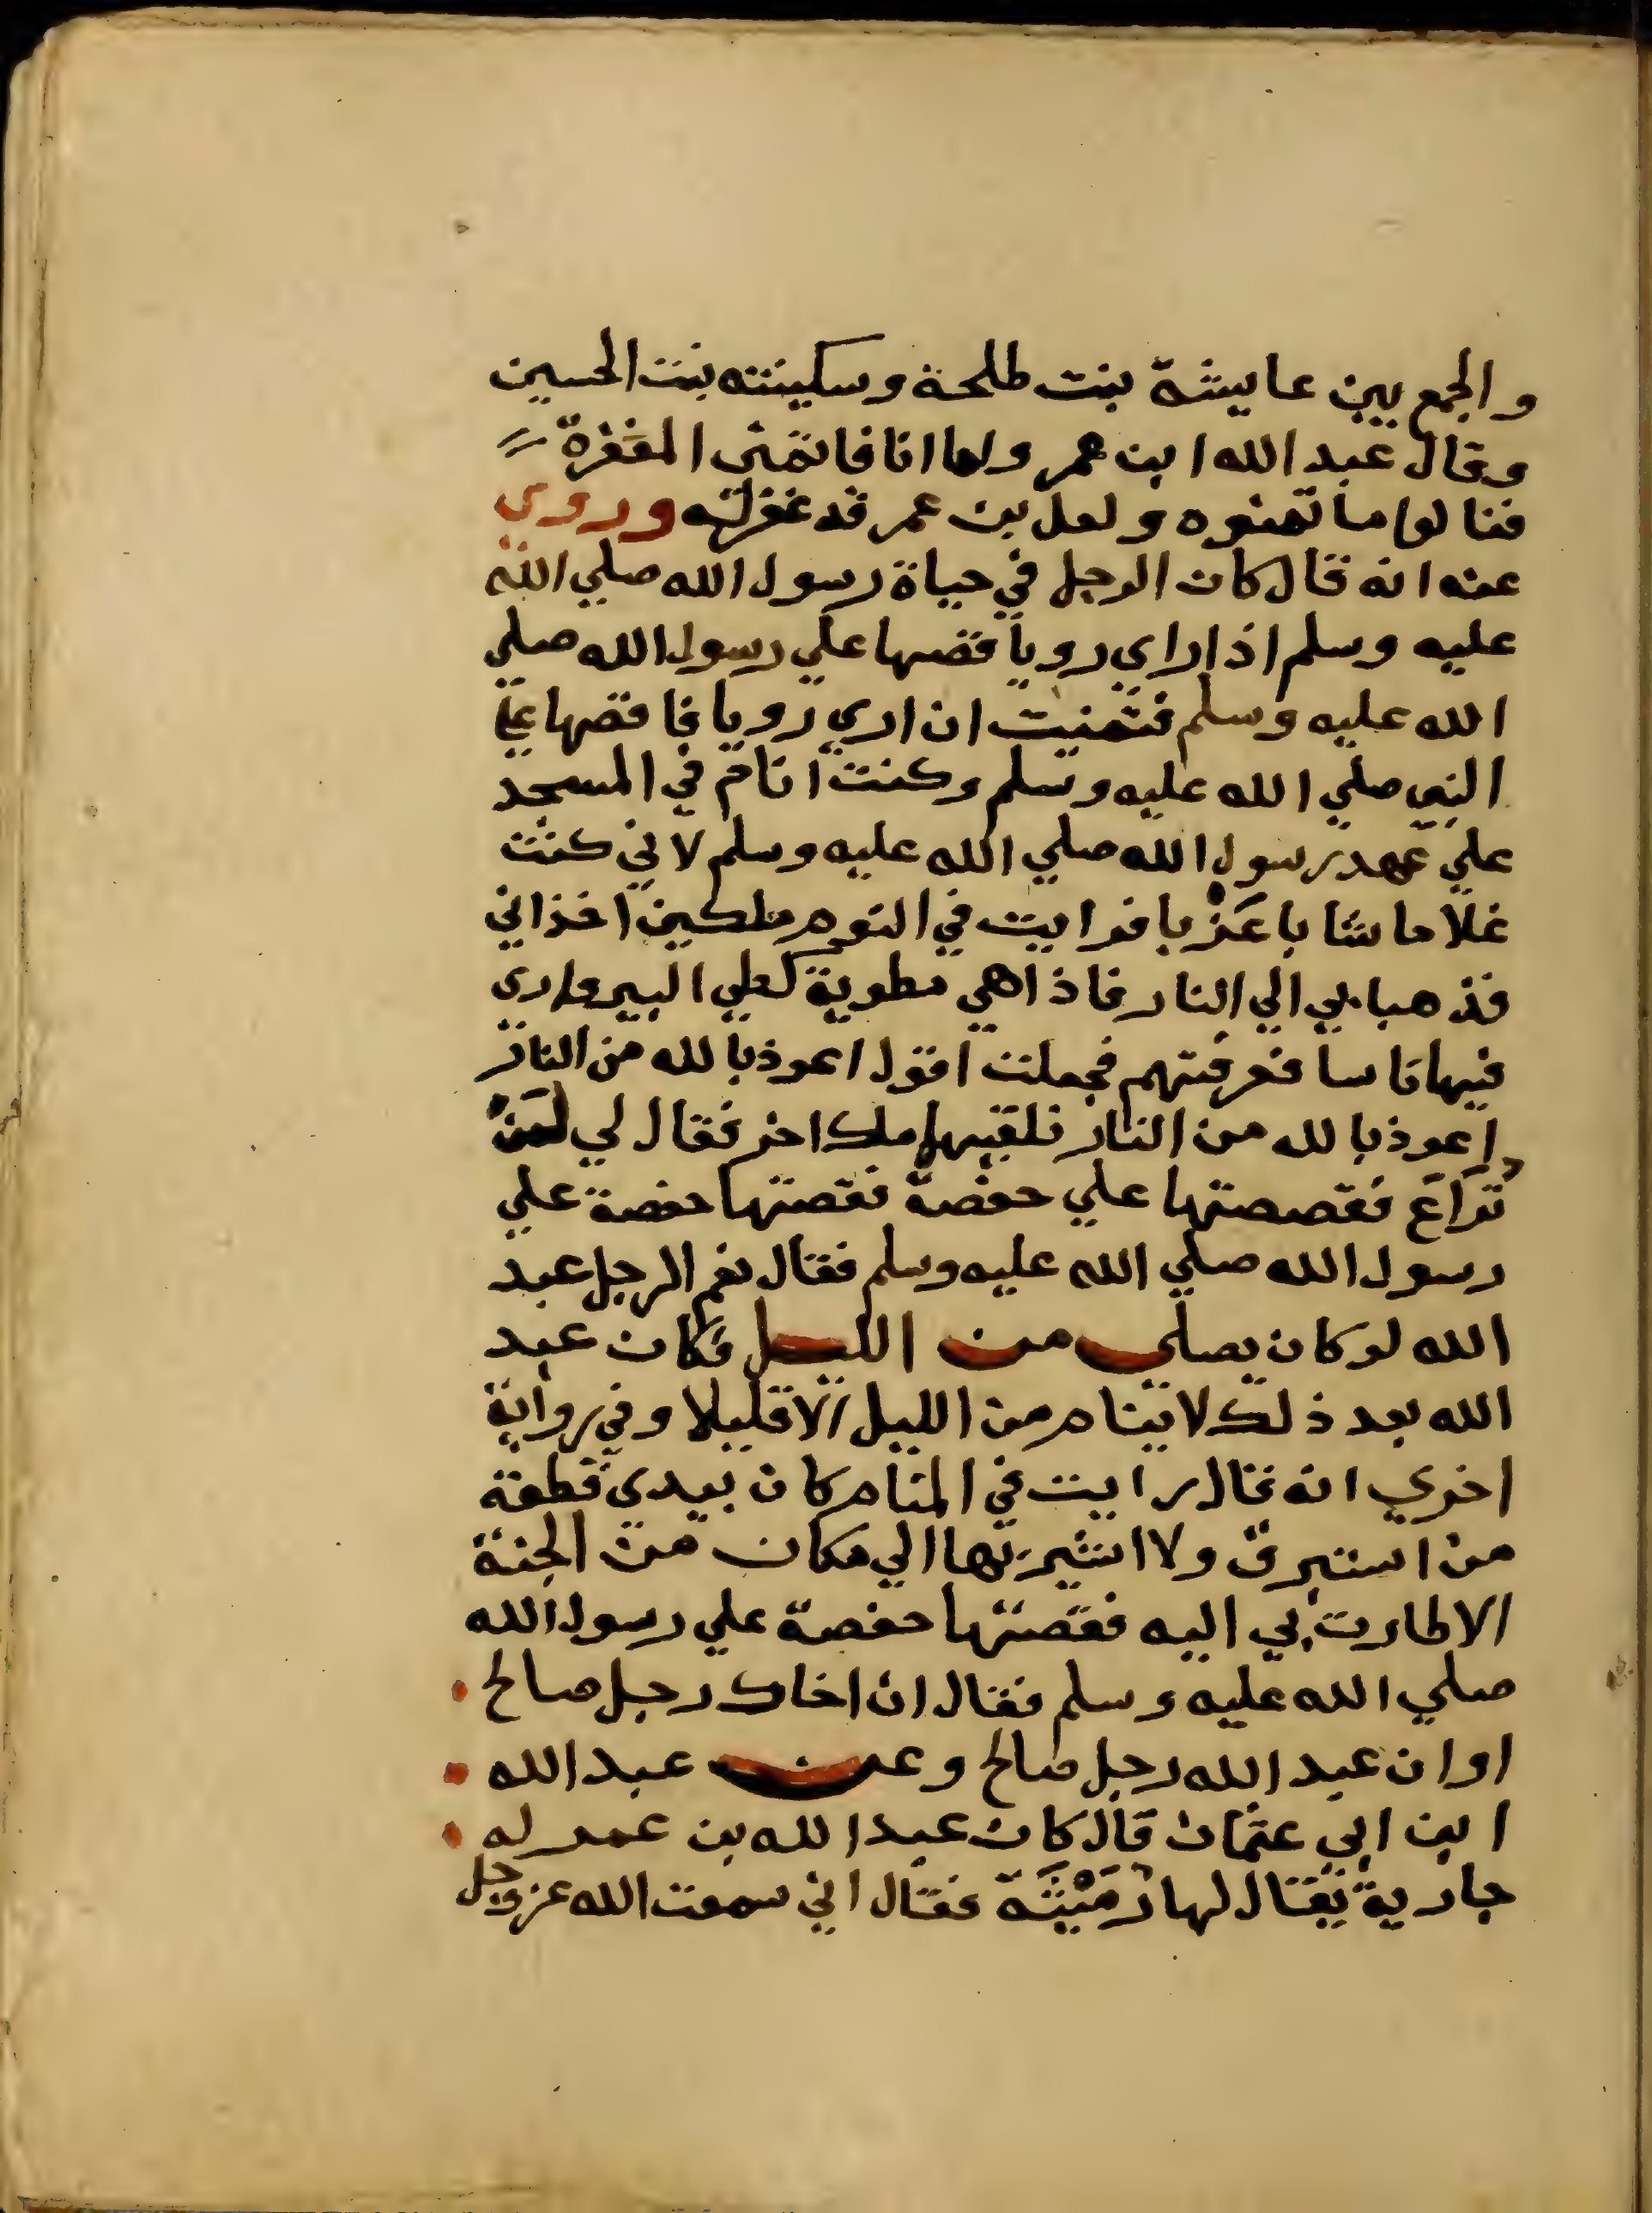 والجمع بين عايشة بنت طلحة وسكينته بنت الحسين
وقال عبد الله ابن عمر واما انا فاتمنى المغفرة
فنالوا ما تمنوه ولعل بن عمر قد غفر له وروي
عنه انه قال كان الرجل في حياة رسول الله صلي الله
عليه وسلم اذا راي رويا قصها علي رسول الله صلي
الله عليه وسلم فتمنيت ان اري رويا فاقصها علي
النبي صلي الله عليه وسلم وكنت انام في المسجد
علي عهد رسول الله صلي الله عليه وسلم لاني كنت
غلاما شابا عَزْبا فرايت في النوم ملكين اخذاني
فذهبا بي الي النار فاذا هي مطوية كطي البير واري
فيها ناسا فعرفتهم فجعلت اقول اعوذ بالله من النار
اعوذ بالله من النار فلقيهما ملك اخر فقال لي لَمْ
تُرَاعَ فقصصتها علي حفصة فقصتها حفصة علي
رسول الله صلي الله عليه وسلم فقال نعم الرجل عبد
الله لو كان يصلي من الليل فكان عبد
الله بعد ذلك لا ينام من الليل الا قليلا وفي رواية
اخري انه قال رايت في المنام كان بيدي قطعة
من استبرق ولا اشير بها الي مكان من الجنة
الا طارت بي اليه فقصتها حفصة علي رسول الله
صلي الله عليه وسلم فقال ان اخاك رجل صالح
او ان عبد الله رجل صالح وعن عبد الله
ابن ابي عثمان قال كان عبد الله بن عمر له
جارية يقال لها رُمَيْثَة فقال اني سمعت الله عز وجل